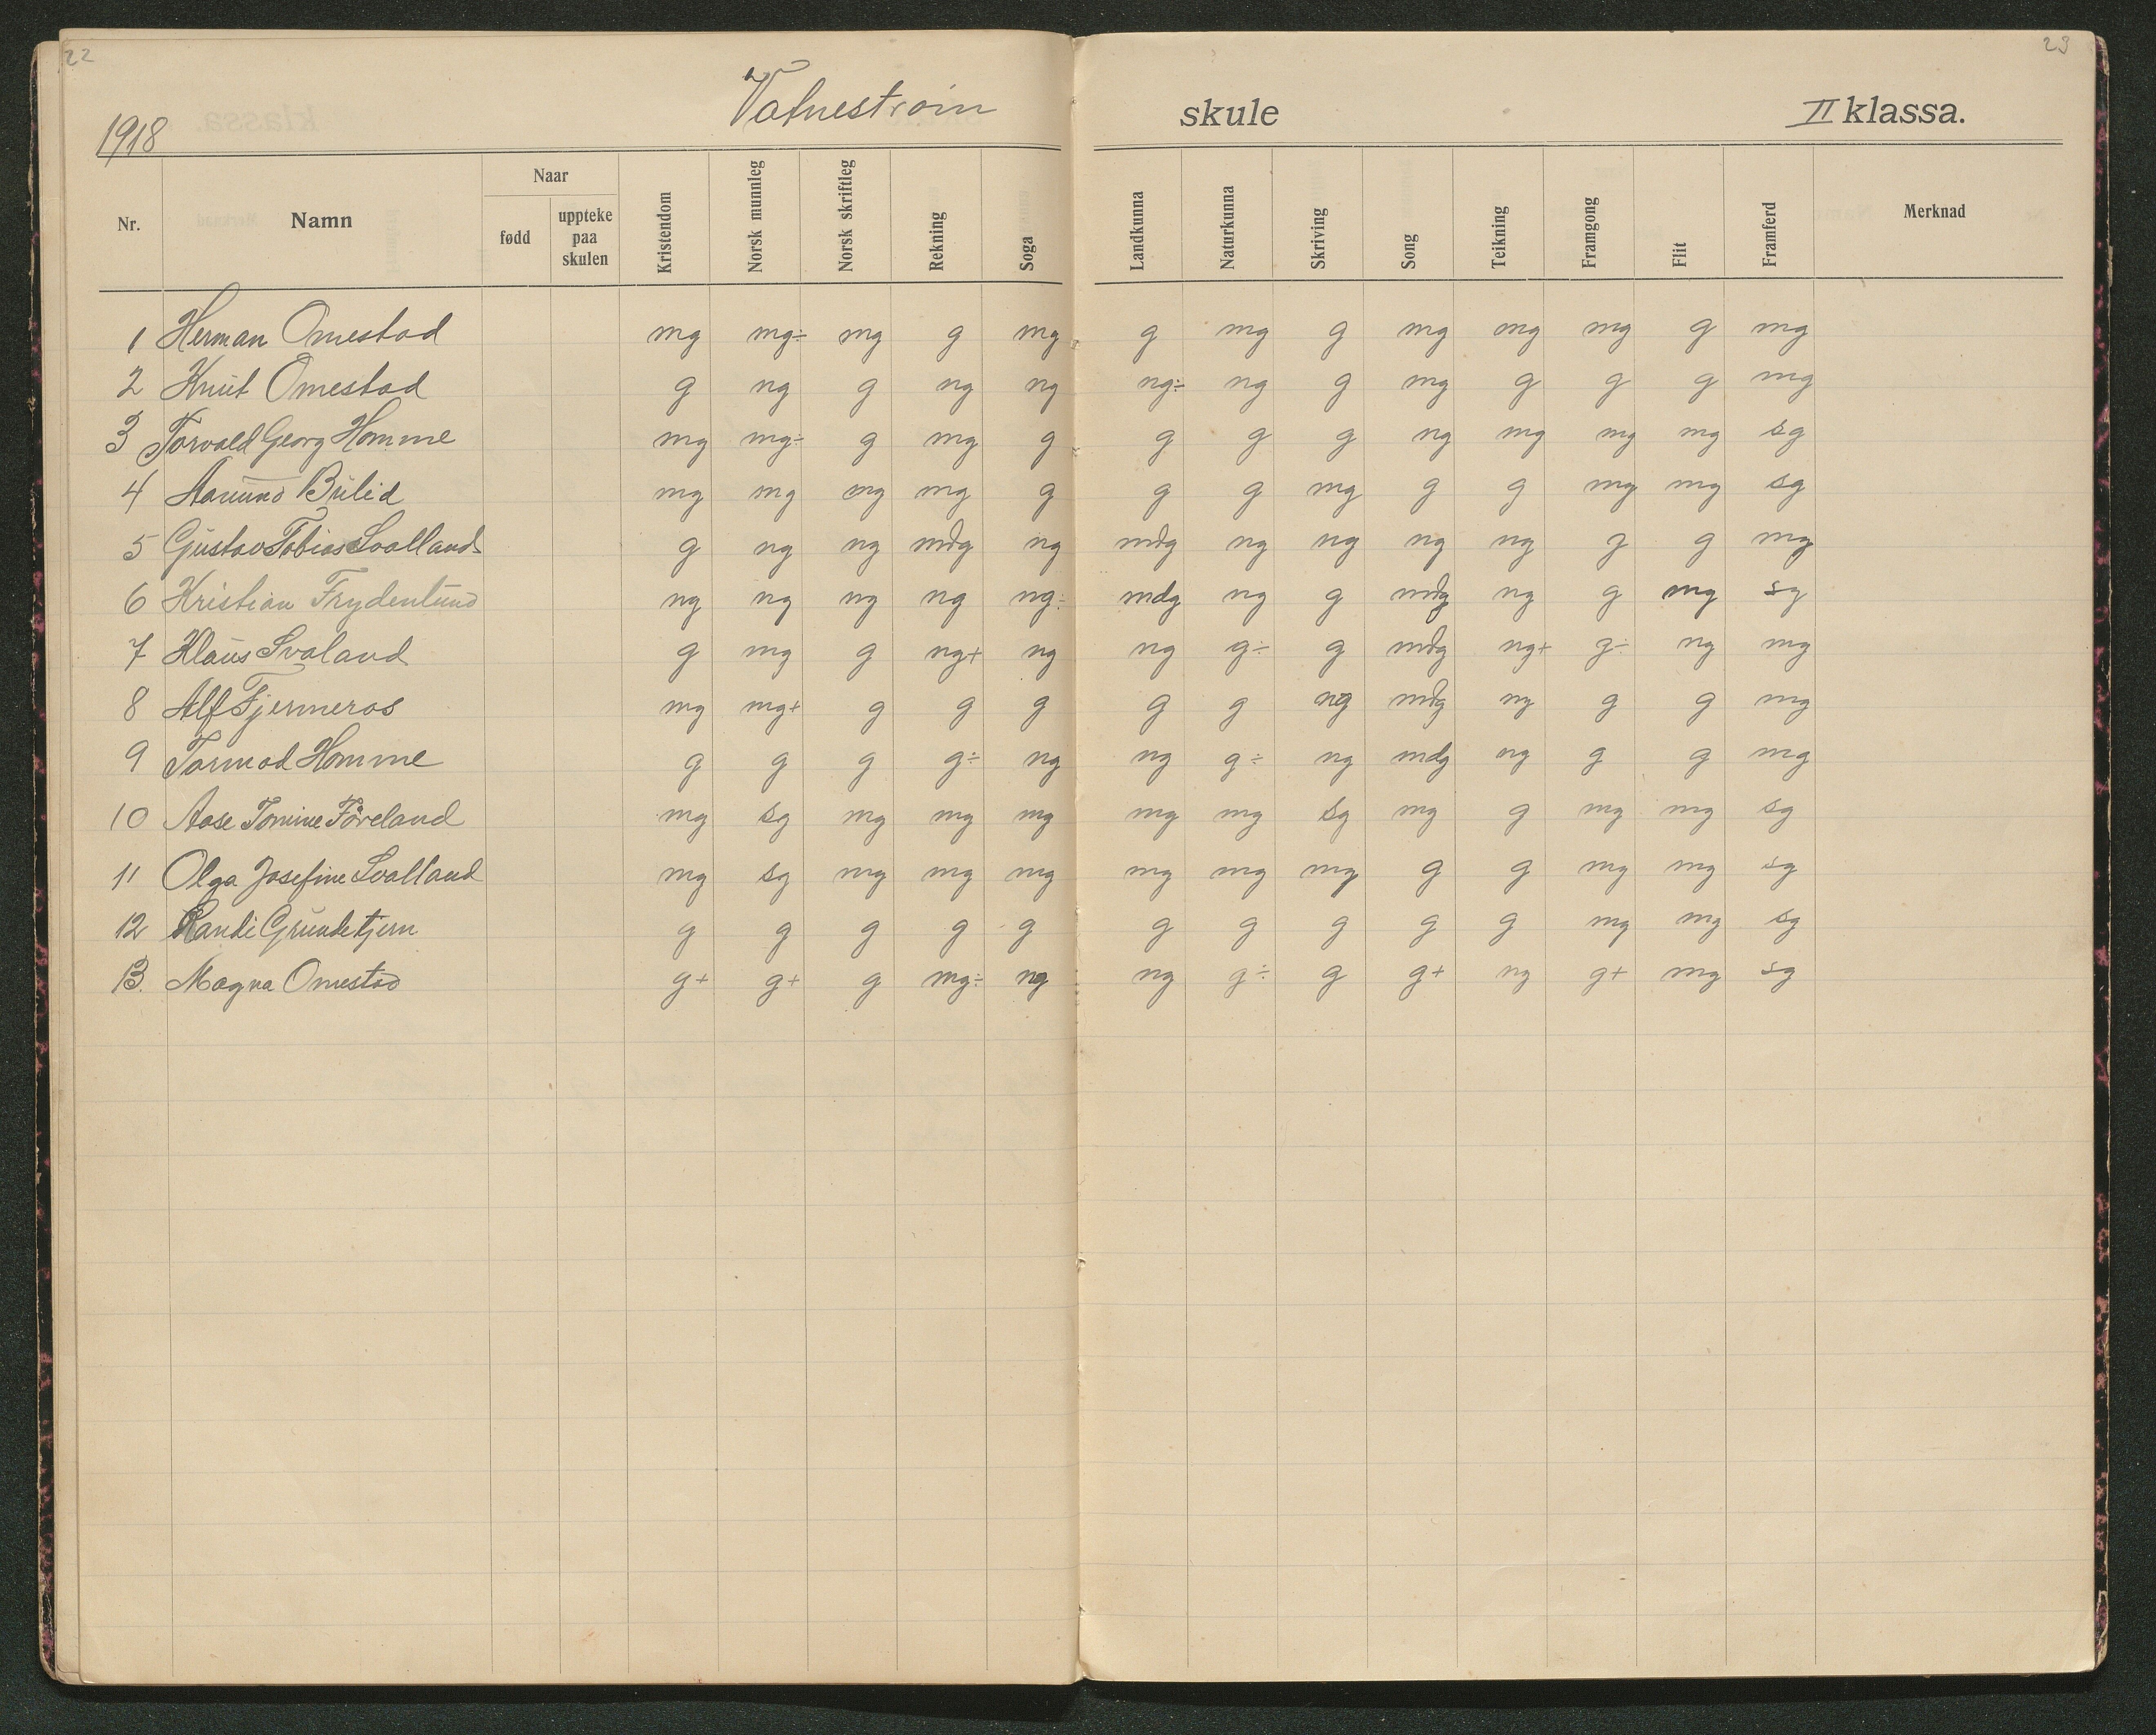 22
23
1918
Vatnestrøm skule II klassa.
Nr. Namn Naar Kristendom Norsk munnleg Norsk skriftleg Rekning Soga Landkunna Naturkunna Skriving Song Teikning Framgong Flit Framferd Merknad
fødd uppteke paa skulen
1 Herman Omestad mg mg÷ mg g mg g mg g mg mg mg g mg
2 Knut Omestad g ng g ng ng ng÷ ng g mg g g g mg
3 Torvald Georg Homme mg mg÷ g mg g g g g ng mg mg mg sg
4 Aanund Bulid mg mg mg mg g g g mg g g mg mg sg
5 Gustav Tobias Svalland g ng ng mdg ng mdg ng ng ng ng g g mg
6 Kristian Frydenlund ng ng ng ng ng÷ mdg ng g mdg ng g mg sg
7 Klaus Svaland g mg g ng+ ng ng g÷ g mdg ng+ g÷ ng mg
8 Alf Fjermeros mg mg+ g g g g g ng mdg ng g g mg
9 Tormod Homme g g g g÷ ng ng g÷ ng mdg ng g g mg
10 Aase Tomine Føreland mg sg mg mg mg mg mg sg mg g mg mg sg
11 Olga Josefine Svalland mg sg mg mg mg mg mg mg g g mg mg sg
12 Randi Grundetjern g g g g g g g g g g mg mg sg
13. Magna Omestad g+ g+ g mg÷ ng ng g÷ g g+ ng g+ mg sg